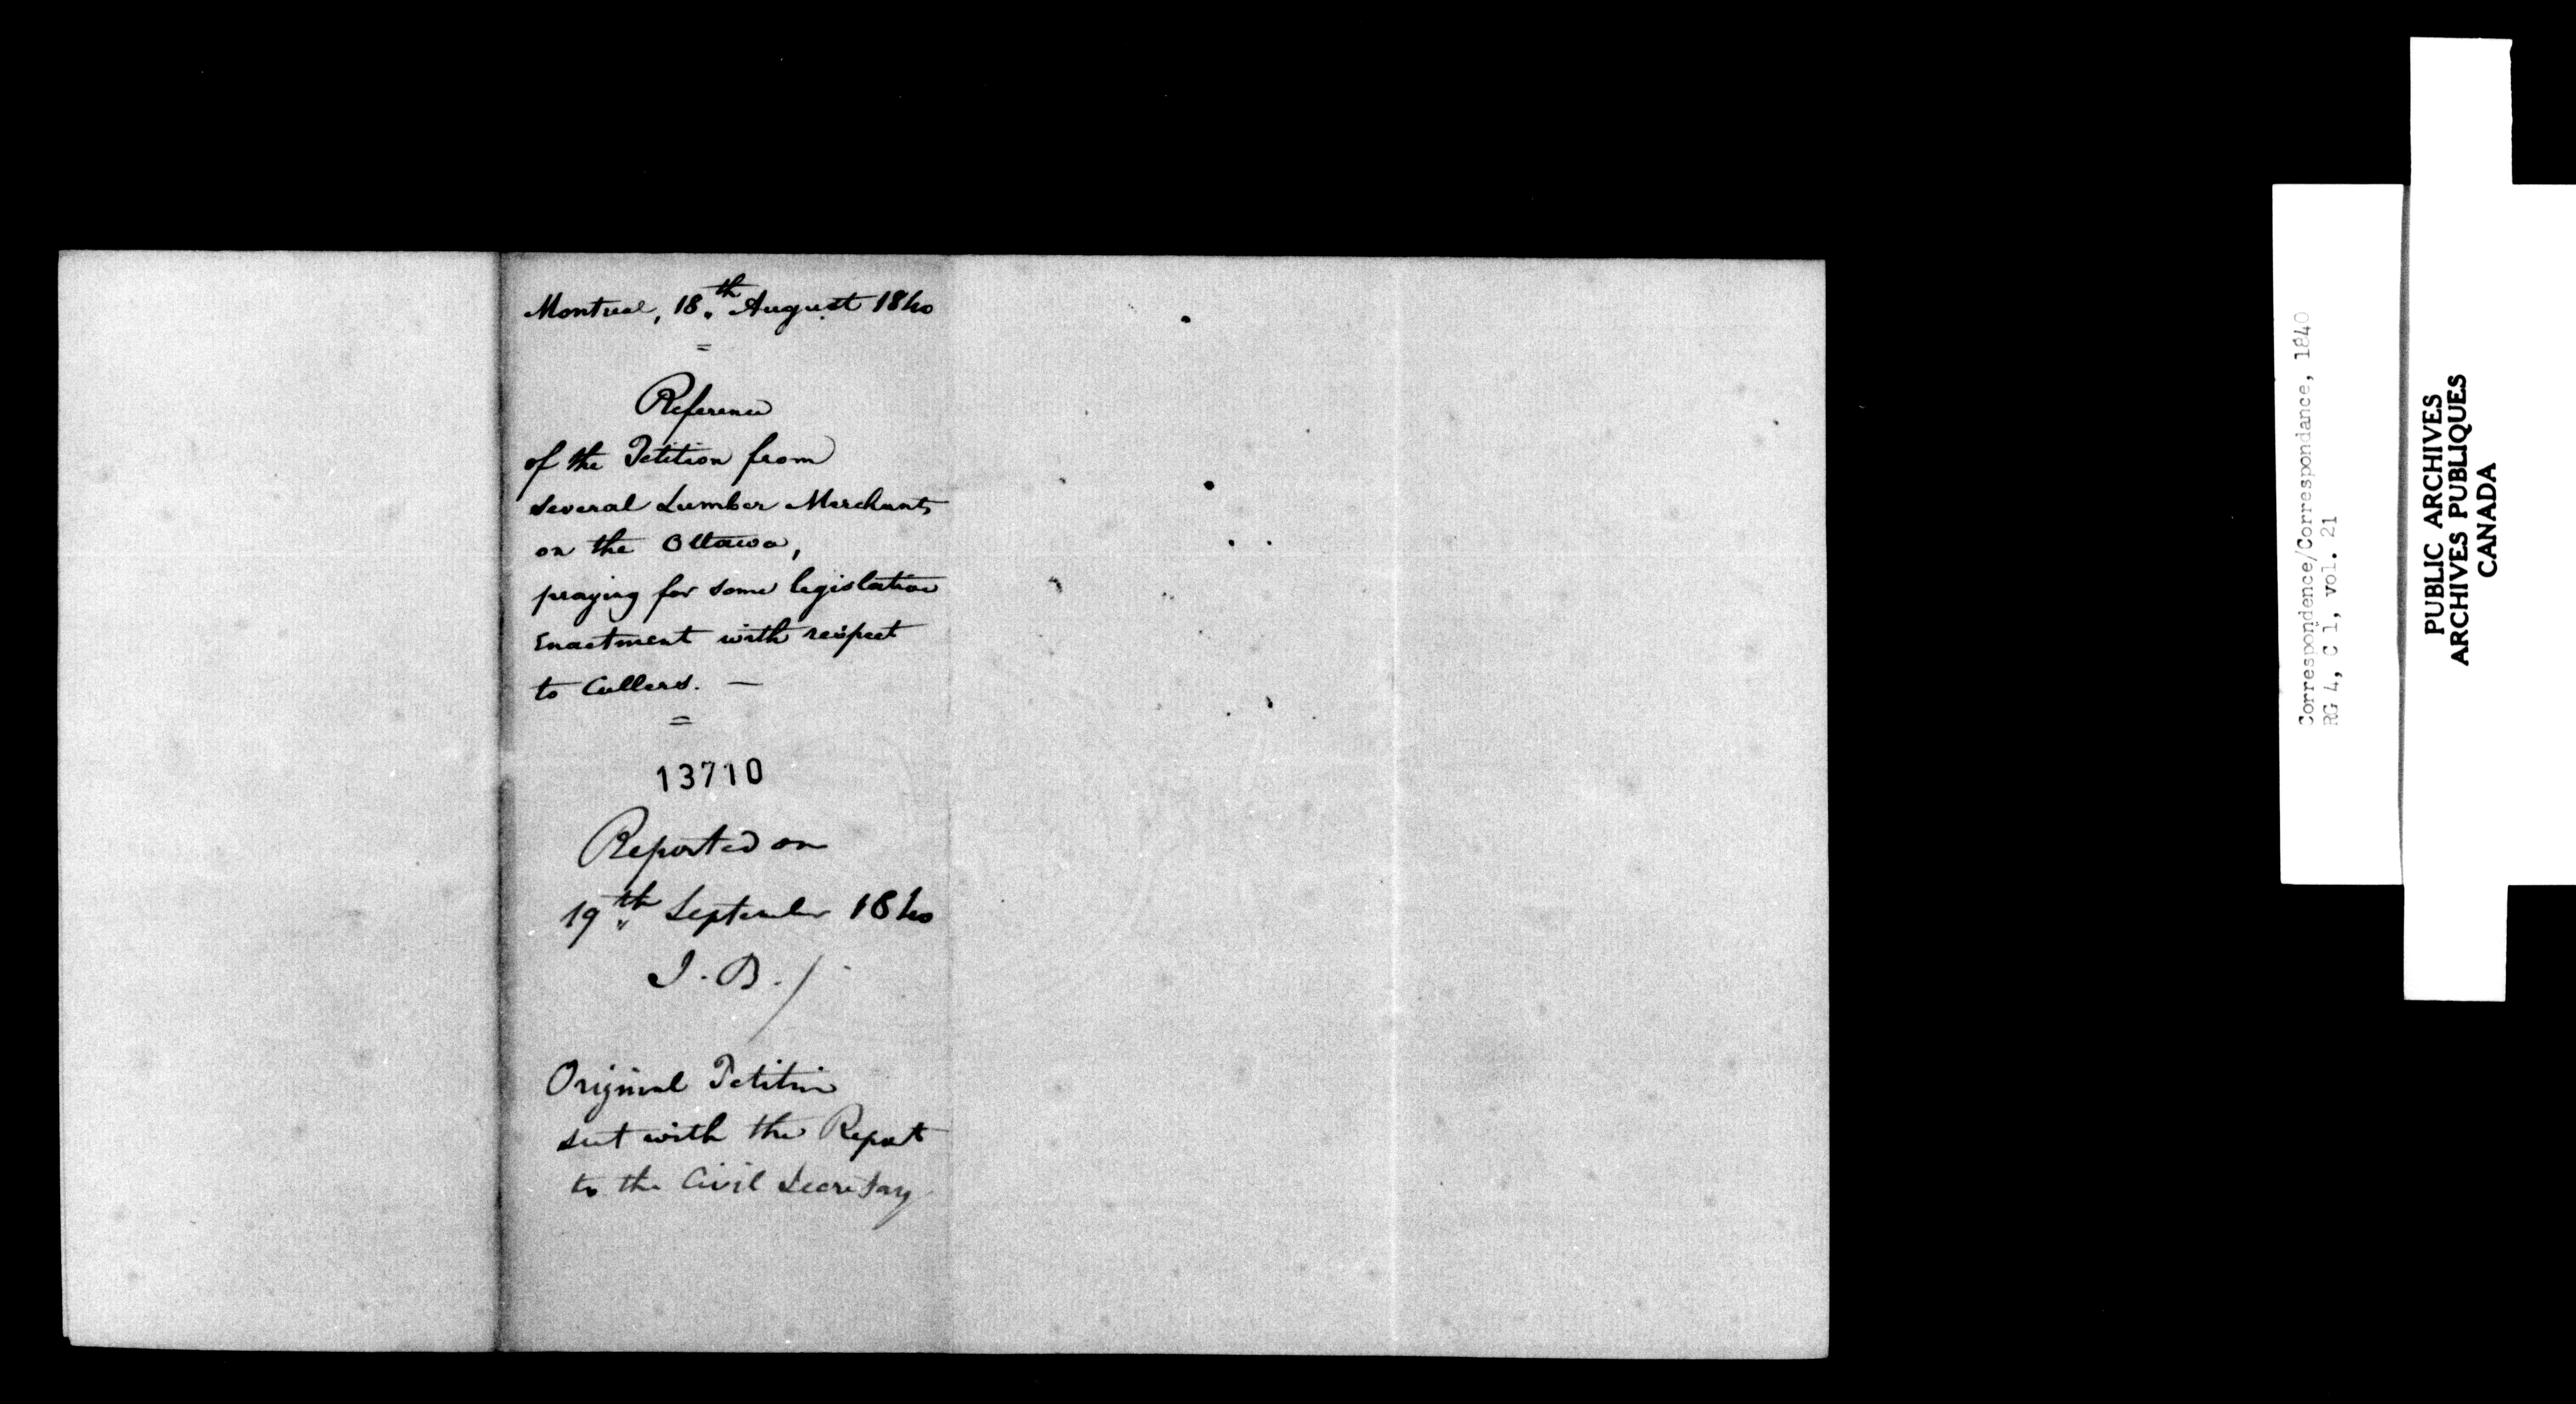 Montreal, 18th August 1840
=
Reference
of the Petition from
several Lumber Merchants
on the Ottawa,
praying for some legislative
Enactment with respect
to Cullers. —
=
13710
Reported on
19th September 1840
J. B. /
Original Petition
sent with the Report
to the Civil Secretary
Correspondence/Correspondance, 1840
RG 4, C 1, vol. 21
PUBLIC ARCHIVES
ARCHIVES PUBLIQUES
CANADA